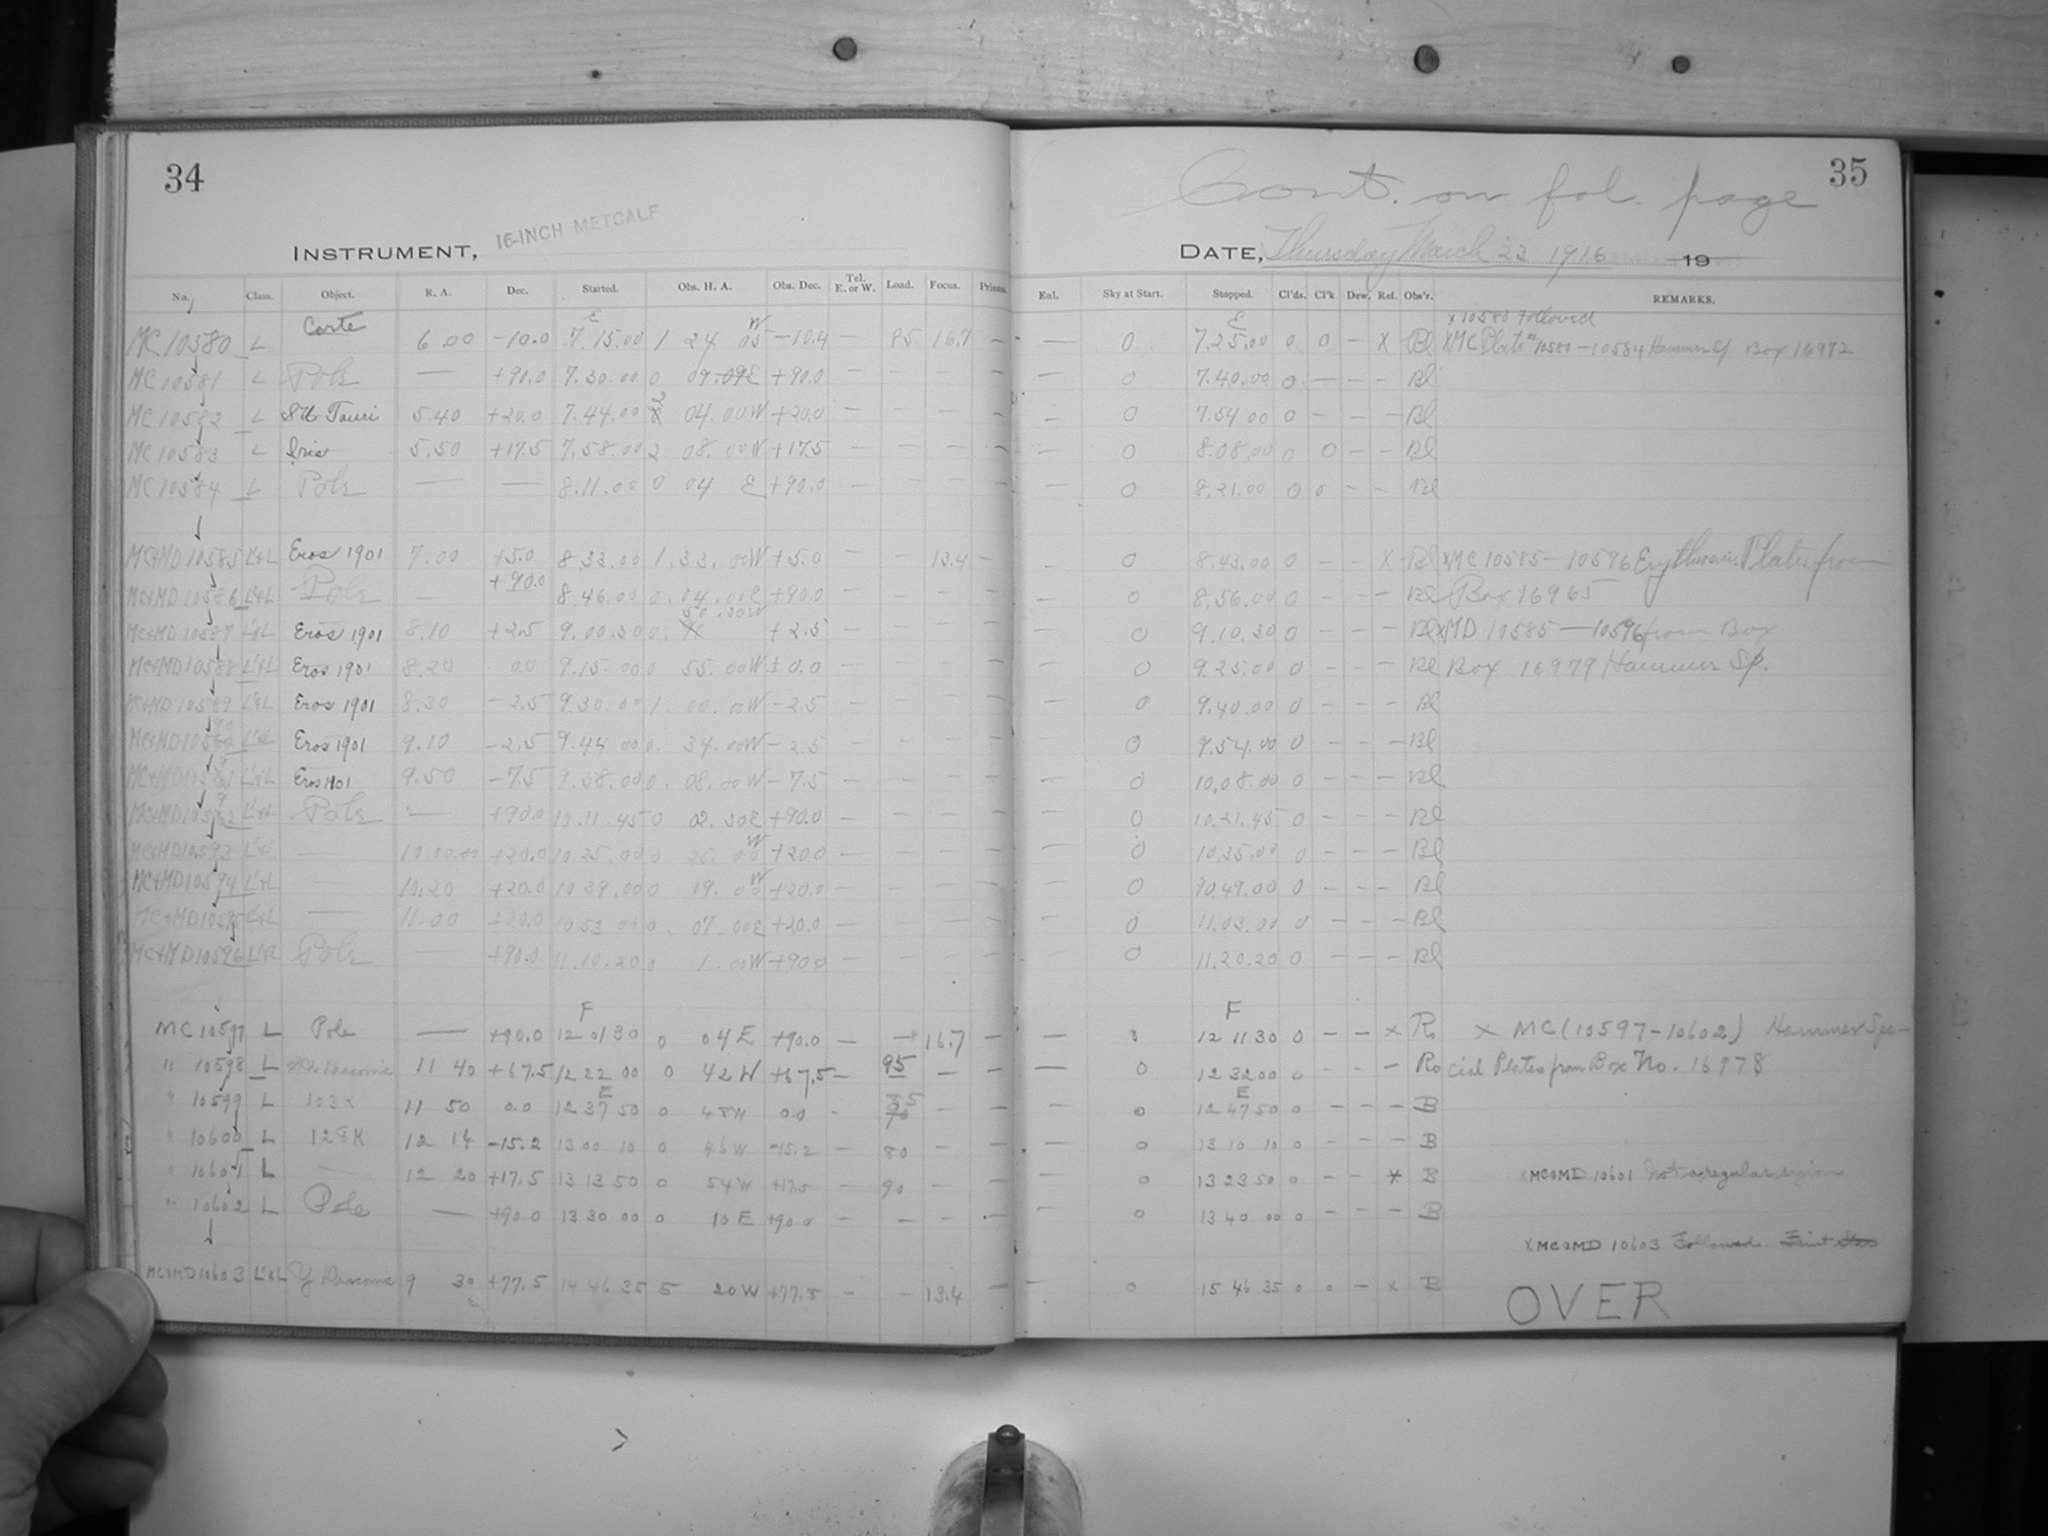 34
35
Cont. on fol. page
INSTRUMENT, 16-INCH METCALF
DATE, Thursday March 23 1916 19
No. Class. Object. R. A. Dec. Started. Obs. H. A. Obs. Dec. Tel. E. or W. Load. Focus. Prisms. Enl. Sky at Start. Stopped. Cl'ds. Cl'k Dew. Ref. Obs'r. REMARKS.
E W E x 10580 Followed
MC 10580 L 6 00 -10.0 7.15.00 1 24 05 -10.4 — 85 16.7 — — 0 7.25.00 0 0 — X Bl XMC Plates 10580-10584 Hammer Box 16972
MC 10581 L Pole — +90.0 7.30.00 0 09.09E +90.0 — — — — — 0 7.40.00 0 — — - Bl
MC 10582 L SU Tauri 5.40 +20.0 7.44.00 2 04.00W +20.0 — — — — — 0 7.54 00 0 - - - Bl
MC 10583 L Iris 5.50 +17.5 7.58.00 2 08.00W +17.5 — — — — — 0 8.08.00 0 0 - - Bl
MC 10584 L Pole — — 8.11.00 0 04 E +90.0 — — — — — 0 8.21.00 0 0 - - Bl
MC+MD 10585 L'+L Eros 1901 7.00 +5.0 8.33.00 1.33.00W +5.0 — — 13.4 — 0 8.43.00 0 - - X Bl XMC 10585-10596 Erythrosin Plates from
MC+MD 10586 L'+L Pole — +90.0 8.46.00 0.04.00E +90.0 — — — — — 0 8.56.00 0 - - - Bl Box 16965
50.30W
MC+MD 10587 L'+L Eros 1901 8.10 +2.5 9.00.30 0. +2.5 — — — — 0 9.10.30 0 - - - Bl XMD 10585-10596 from Box
MC+MD 10588 L'+L Eros 1901 8.20 0.0 9.15.00 0 55.00W ±0.0 — — — — 0 9.25.00 0 - - - Bl Box 16979 Hammer Sp.
MC+MD 10589 L'+L Eros 1901 8.30 -2.5 9.30.00 1.00.00W -2.5 — — — — 0 9.40.00 0 - - - Bl
MC+MD 10590 L'+L Eros 1901 9.10 -2.5 9.44 00 0. 34.00W -2.5 — — — — 0 9.54.00 0 - - - Bl
MC+MD 10591 L'+L Eros 1901 9.50 -7.5 9.58.00 0. 08.00W -7.5 — — — — — 0 10.08.00 0 - - - Bl
MC+MD 10592 L'+L Pole — +90.0 10.11.45 0 02.30E +90.0 — — — — — 0 10.21.45 0 - - - Bl
MC+MD 10593 L'+L — 10.00.00 +20.0 10.25.00 0 25.00 W +20.0 — — — — — 0 10.35.00 0 - - - Bl
MC+MD 10594 L'+L — 10.20 +20.0 10 39.00 0 19.00 W +20.0 — — — — — 0 10.49.00 0 - - - Bl
MC+MD 10595 L'+L — 11.00 +20.0 10.53 00 0. 07.00E +20.0 — — — — — 0 11.03.00 0 - - - Bl
MC+MD 10596 L'+L Pole — +90.0 11.10.20 0 1.00W +90.0 — — — — — 0 11.20.20 0 - - - Bl
F F
MC 10597 L Pole — +90.0 12 01 30 0 04 E +90.0 — — 16.7 — — 0 12 11 30 0 - - x Ro X MC (10597-10602) Hammer Spe-
" 10598 L 11 40 +67.5 12 22 00 0 42 W +67.5 — 95 — — — 0 12 32 00 0 - Ro cial Plates from Box No. 16978
E E
" 10599 L 103K 11 50 0.0 12 37 50 0 48W 0.0 - — — 0 12 47 50 0 - - - B
" 10600 L 128K 12 14 -15.2 13 00 10 0 46W -15.2 — 80 — — 0 13 10 10 0 - - - B
" 10601 L — 12 20 +17.5 13 13 50 0 54W +17.5 — 90 — — — 0 13 23 50 0 - - * B X MC&MD 10601 not a regular region
" 10602 L Pole — +90.0 13 30 00 0 10 E +90.0 — — — — — 0 13 40 00 0 - - - B
X MC&MD 10603 Followed. Faint star
MC&MD 10603 L'&L Y Draconis 9 30 +77.5 14 46 35 5 20W +77.5 — - 13.4 — 0 15 46 35 0 0 - x B
OVER